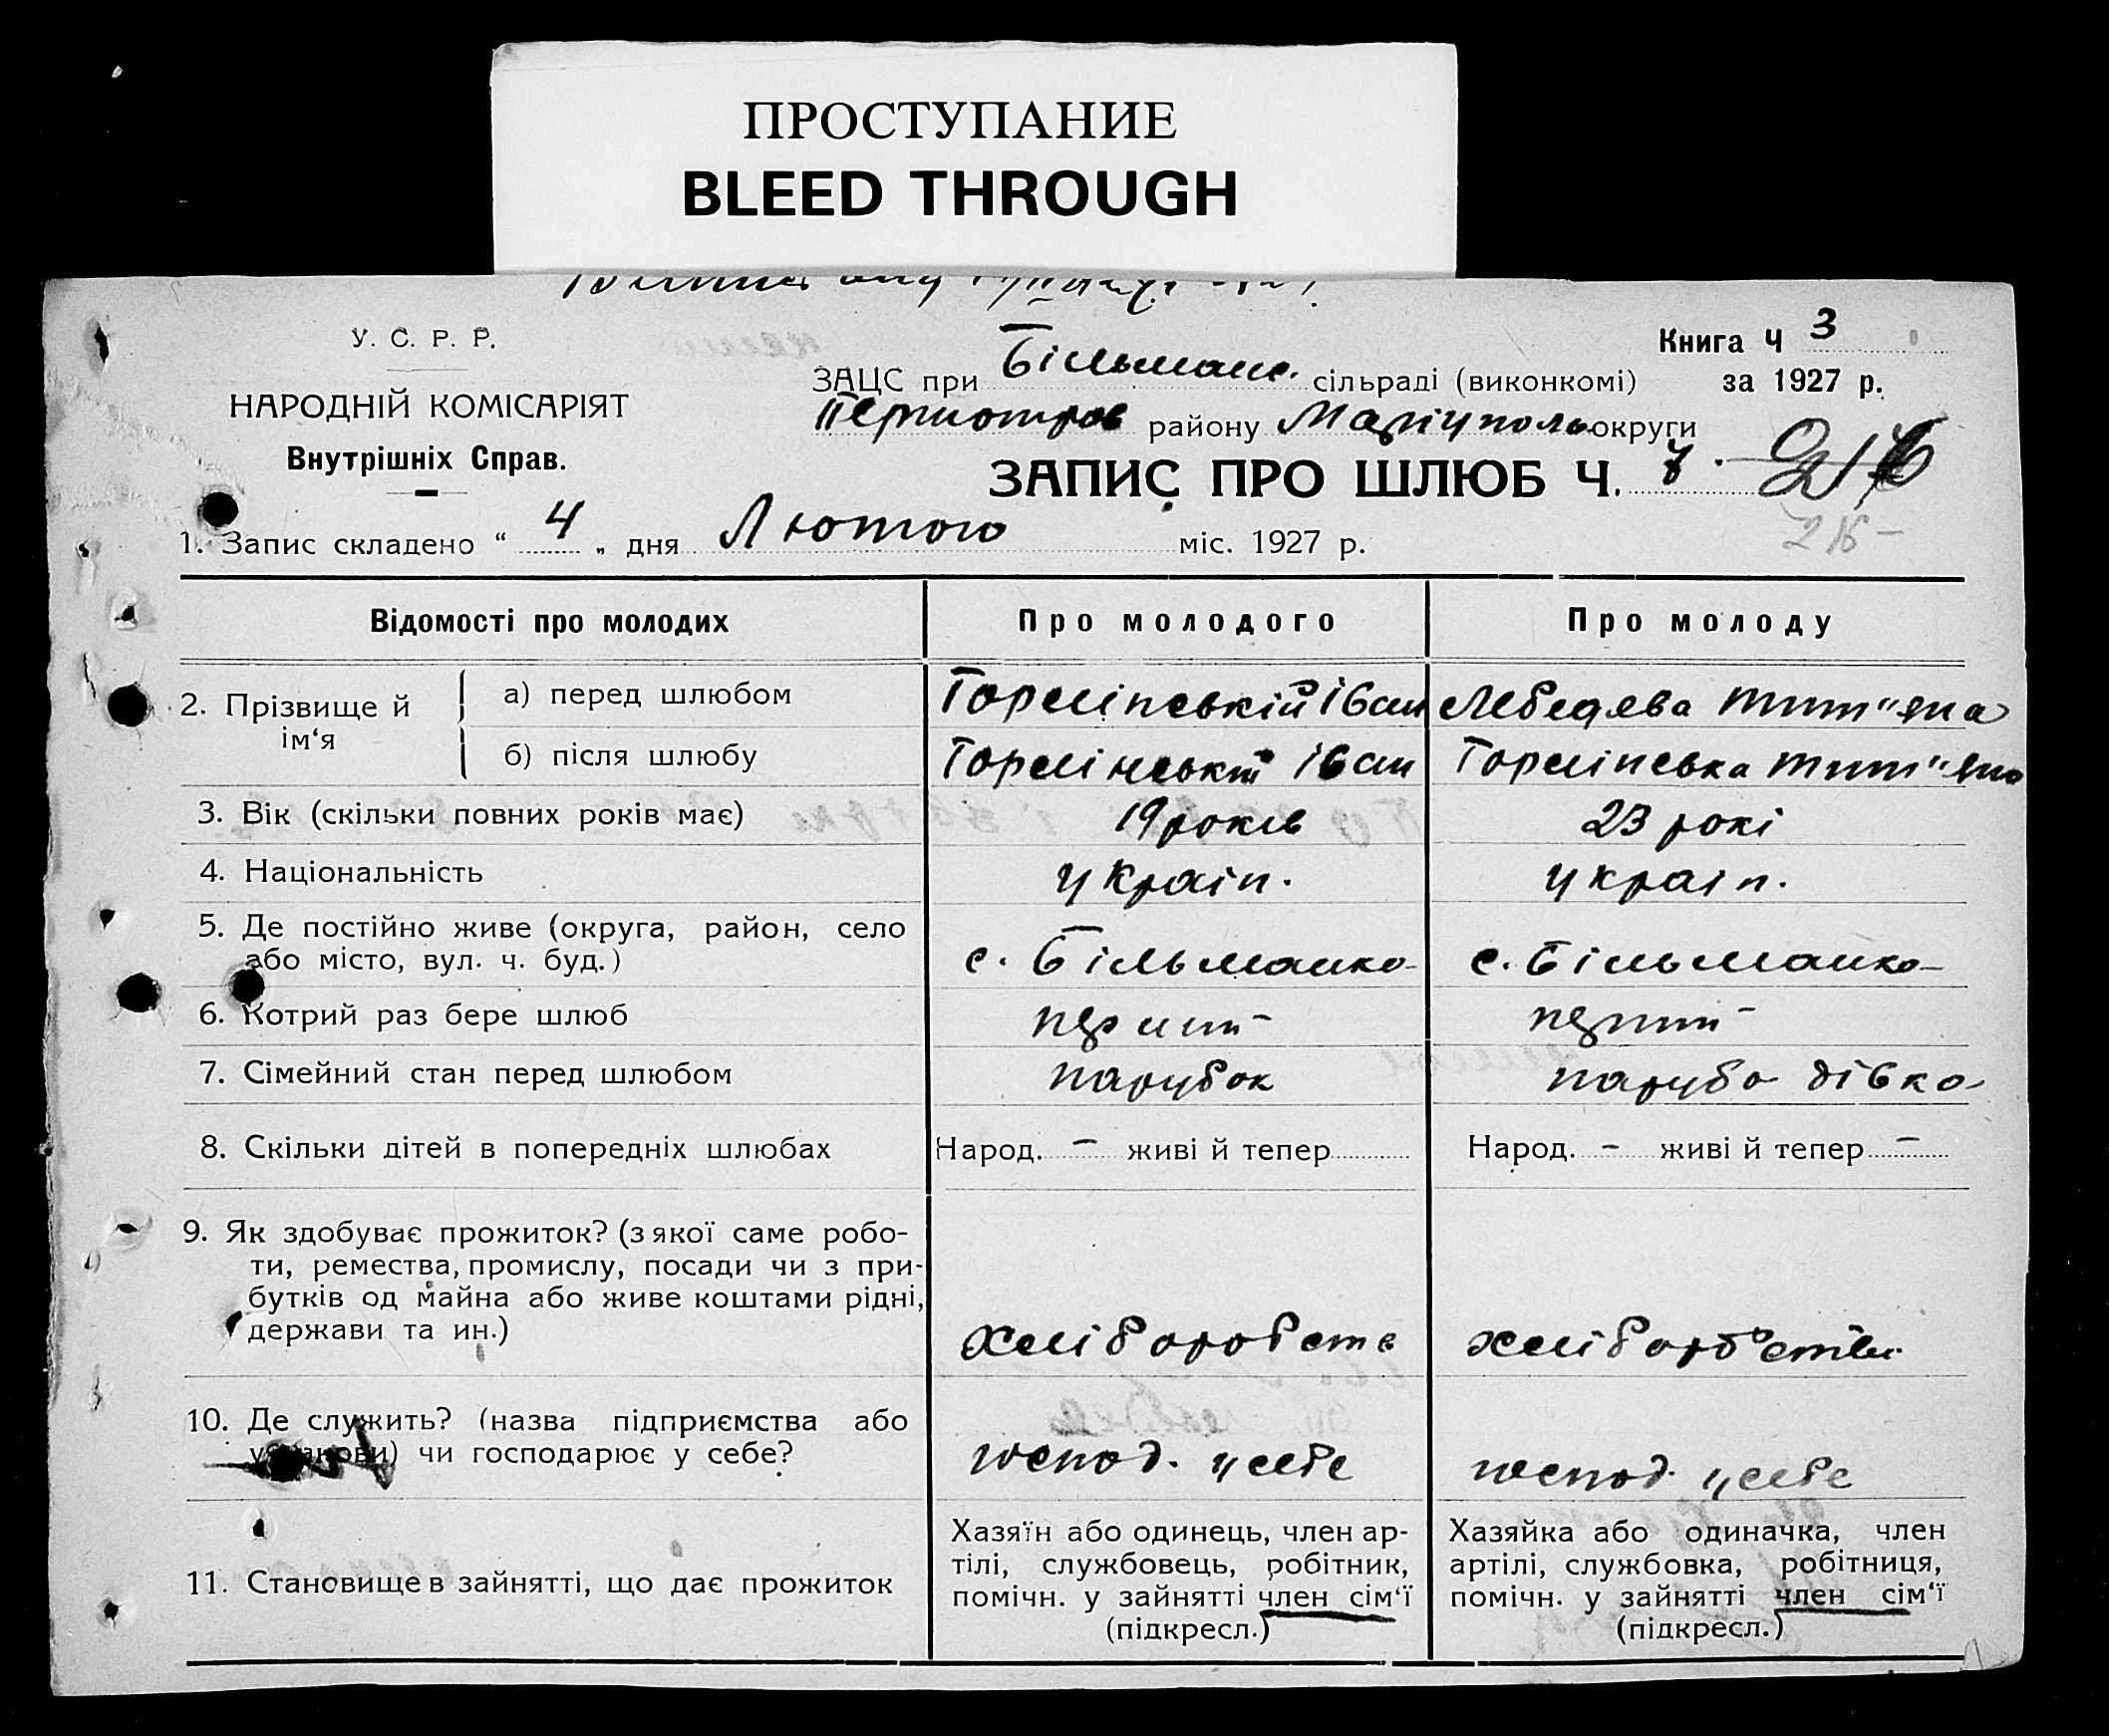 ПРОСТУПАНИЕ
BLEED THROUGH
У. С. Р. Р.
НАРОДНІЙ КОМІСАРІЯТ
Внутрішніх Справ.
Книга Ч 3
ЗАЦС при Більманс. сільраді (виконкомі) за 1927 р.
району Маріуполь округи
ЗАПИС ПРО ШЛЮБ Ч. 7.
1. Запис складено “ 4 „ дня Лютого міс. 1927 р.
Відомості про молодих Про молодого Про молоду
2. Прізвище й ім‘я
а) перед шлюбом Горлінській Іван Лебедєва Тит"яна
б) після шлюбу Горлінській Іван Горлінська Тит"яна
3. Вік (скільки повних років має) 19 років 23 рокі
4. Національність украін. украін.
5. Де постійно живе (округа, район, село
або місто, вул. ч. буд.) с. Більманка с. Більманка
6. Котрий раз бере шлюб перший перший
7. Сімейний стан перед шлюбом парубок паруба дівка
8. Скільки дітей в попередніх шлюбах Народ. – живі й тепер Народ. – живі й тепер –
9. Як здобуває прожиток? (з якої саме робо-
ти, ремества, промислу, посади чи з при-
бутків од майна або живе коштами рідні,
держави та ин.) хліборобств
10. Де служить? (назва підприємства або
установи) чи господарює у себе? господ. у себе господ. у себе
11. Становище в зайнятті, що дає прожиток
Хазяїн або одинець, член ар-
тілі, службовець, робітник,
помічн. у зайнятті член сім‘ї
(підкресл.)
Хазяйка або одиначка, член
артілі, службовка, робітниця,
помічн. у зайнятті член сім‘ї
(підкресл.)